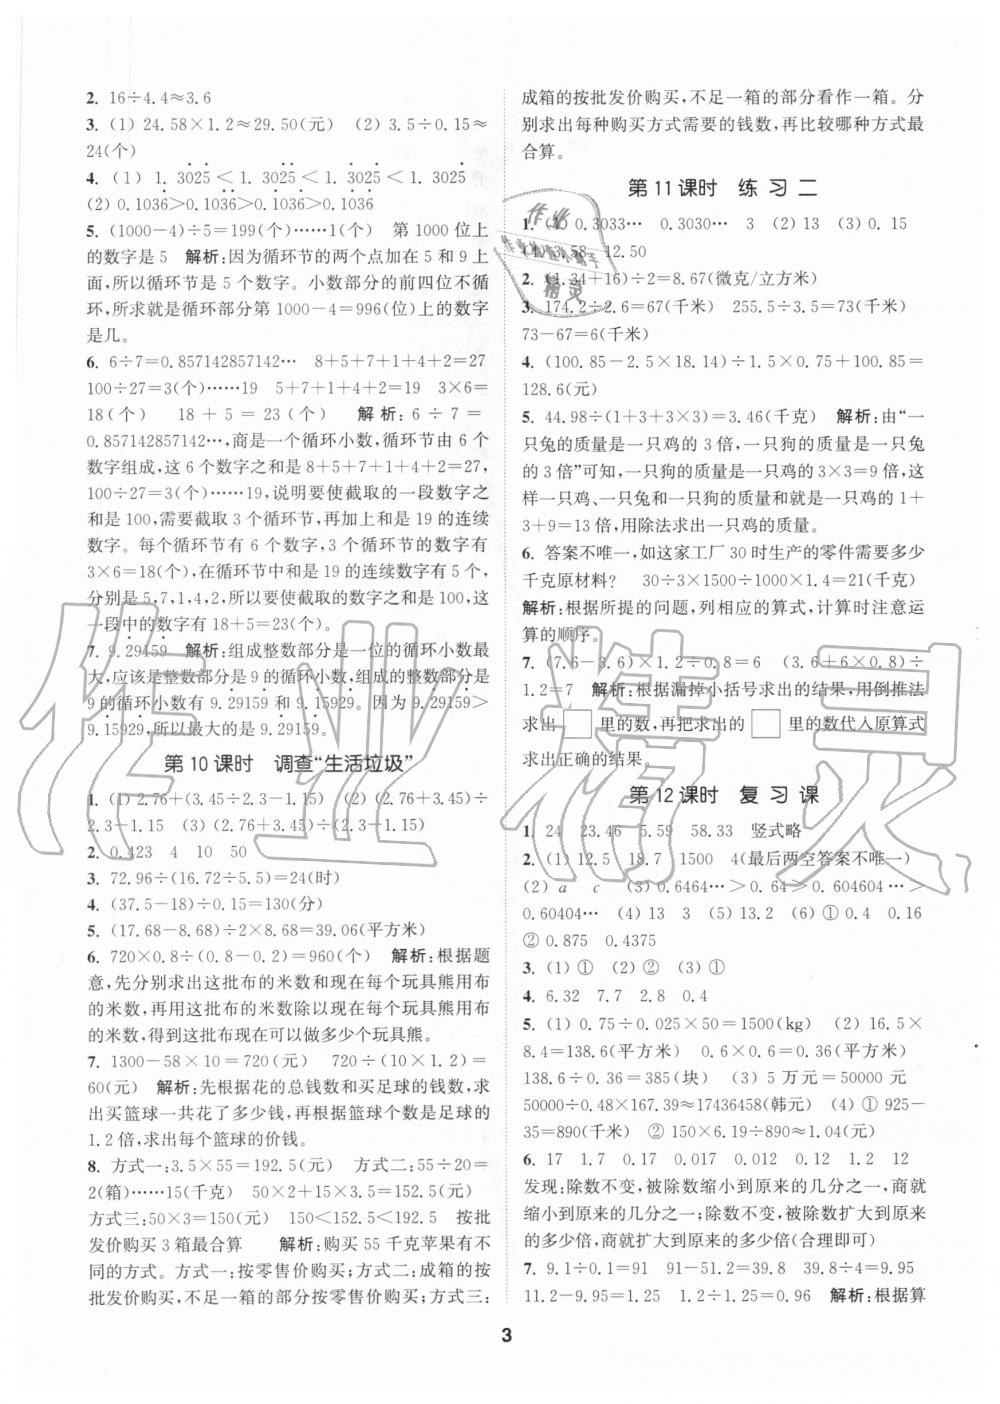 2. 16÷4.4≈3.6
3. (1) 24.58×1.2≈29.50(元) (2) 3.5÷0.15≈
24(个)
4. (1) 1.3025<1.3025<1.3025<1.3025
(2) 0.1036>0.1036>0.1036>0.1036
5. (1000-4)÷5=199(个)……1(个) 第1000位上
的数字是5 解析:因为循环节的两个点加在5和9上
面,所以循环节是5个数字。小数部分的前四位不循
环,所求就是循环部分第1000-4=996(位)上的数字
是几。
6. 6÷7=0.857142857142… 8+5+7+1+4+2=27
100÷27=3(个)……19 5+7+1+4+2=19 3×6=
18(个) 18+5=23(个) 解析:6÷7=
0.857142857142…,商是一个循环小数,循环节由6个
数字组成,这6个数字之和是8+5+7+1+4+2=27,
100÷27=3(个)……19,说明要使截取的一段数字之
和是100,需要截取3个循环节,再加上和是19的连续
数字。每个循环节有6个数字,3个循环节有
3×6=18(个),在循环节中和是19的连续数字有5个,
分别是5,7,1,4,2,所以,要使截取的数字和是100,这
一段中的数字有18+5=23(个)。
7. 9.29159 解析:组成整数部分是一位的循环小数最
大,应该是整数部分是9的循环小数,组成的整数部分是
9的循环小数有9.29159和9.15929。因为9.29159>
9.15929,所以最大的是9.29159。
第10课时 调查“生活垃圾”
1. (1) 2.76+(3.45÷2.3-1.15) (2) (2.76+3.45)÷
2.3-1.15 (3) (2.76+3.45)÷(2.3-1.15)
2. 0.423 4 10 50
3. 72.96÷(16.72÷5.5)=24(时)
4. (37.5-18)÷0.15=130(分)
5. (17.68-8.68)÷2×8.68=39.06(平方米)
6. 720×0.8÷(0.8-0.2)=960(个) 解析:根据题
意,先分别求出这批布的米数和现在每个玩具熊用布
的米数,再用这批布的米数除以现在每个玩具熊用布
的米数,得到这批布现在可以做多少个玩具熊。
7. 1300-58×10=720(元) 720÷(10×1.2)=
60(元) 解析:先根据花的总钱数和买足球的钱数,求
出买篮球一共花了多少钱,再根据篮球个数是足球的
1.2倍,求出每个篮球的价钱。
8. 方式一:3.5×55=192.5(元) 方式二:55÷20=
2(箱)……15(千克) 50×2+15×3.5=152.5(元)
方式三:50×3=150(元) 150<152.5<192.5 按批
发价购买3箱最合算 解析:购买55千克苹果有不
同的方式。方式一:按零售价购买;方式二:成箱的按
批发价购买,不足一箱的部分按零售价购买;方式三:
成箱的按批发价购买,不足一箱的部分看作一箱。分
别求出每种购买方式需要的钱数,再比较哪种方式最
合算。
第11课时 练习二
1. (1) 0.3033… 0.3030… 3 (2) 13 (3) 0.15
(4) 3.58 12.50
2. (1.34+16)÷2=8.67(微克/立方米)
3. 174.2÷2.6=67(千米) 255.5÷3.5=73(千米)
73-67=6(千米)
4. (100.85-2.5×18.14)÷1.5×0.75+100.85=
128.6(元)
5. 44.98÷(1+3+3×3)=3.46(千克) 解析:由“一
只兔的质量是一只鸡的3倍,一只狗的质量是一只兔
的3倍”可知,一只狗的质量是一只鸡的3×3=9倍,这
样一只鸡、一只兔和一只狗的质量和就是一只鸡的1+
3+9=13倍,用除法求出一只鸡的质量。
6. 答案不唯一,如这家工厂30时生产的零件需要多少
千克原材料? 30÷3×1500÷1000×1.4=21(千克)
解析:根据所提的问题,列相应的算式,计算时注意运
算的顺序。
7. (7.6-3.6)×1.2÷0.8=6 (3.6+6×0.8)÷
1.2=7 解析:根据漏掉小括号求出的结果,用倒推法
求出□里的数,再把求出的□里的数代入原算式
求出正确的结果。
第12课时 复习课
1. 24 23.46 5.59 58.33 竖式略
2. (1) 12.5 18.7 1500 4(最后两空答案不唯一)
(2) a c (3) 0.6464…>0.64>0.604604…>
0.60404… (4) 13 (5) 13.2 (6) ① 0.4 0.16
② 0.875 0.4375
3. (1) ① (2) ② (3) ①
4. 6.32 7.7 2.8 0.4
5. (1) 0.75÷0.025×50=1500(kg) (2) 16.5×
8.4=138.6(平方米) 0.6×0.6=0.36(平方米)
138.6÷0.36=385(块) (3) 5万元=50000元
50000÷0.48×167.39≈17436458(韩元) (4) ① 925-
35=890(千米) ② 150×6.19÷890≈1.04(元)
6. 17 1.7 0.17 0.017 0.012 0.12 1.2 12
发现:除数不变,被除数缩小到原来的几分之一,商就
缩小到原来的几分之一;除数不变,被除数扩大到原
来的多少倍,商就扩大到原来的多少倍(合理即可)
7. 9.1÷0.1=91 91-51.2=39.8 39.8÷4=9.95
11.2-9.95=1.25 1.2÷1.25=0.96 解析:根据算
3
作业精灵